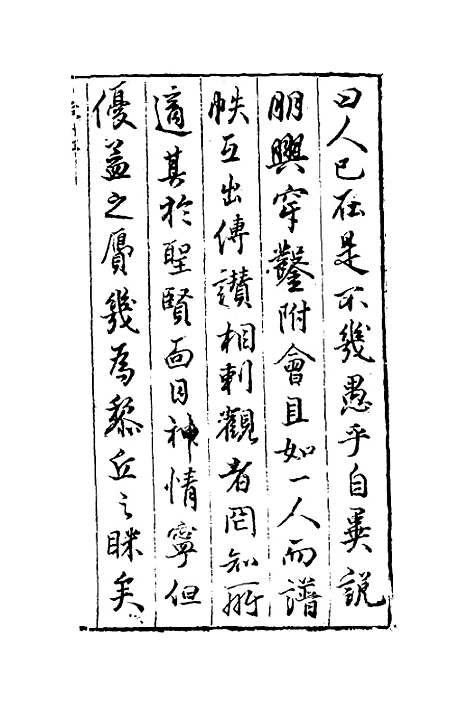 曰人已在是不幾愚乎自異說
朋興穿鑿附會且如一人而譜
帙互出傳讃相剌觀者罔知所
適其於聖賢面目神情寧但
優孟之贋幾為黎丘之眯矣